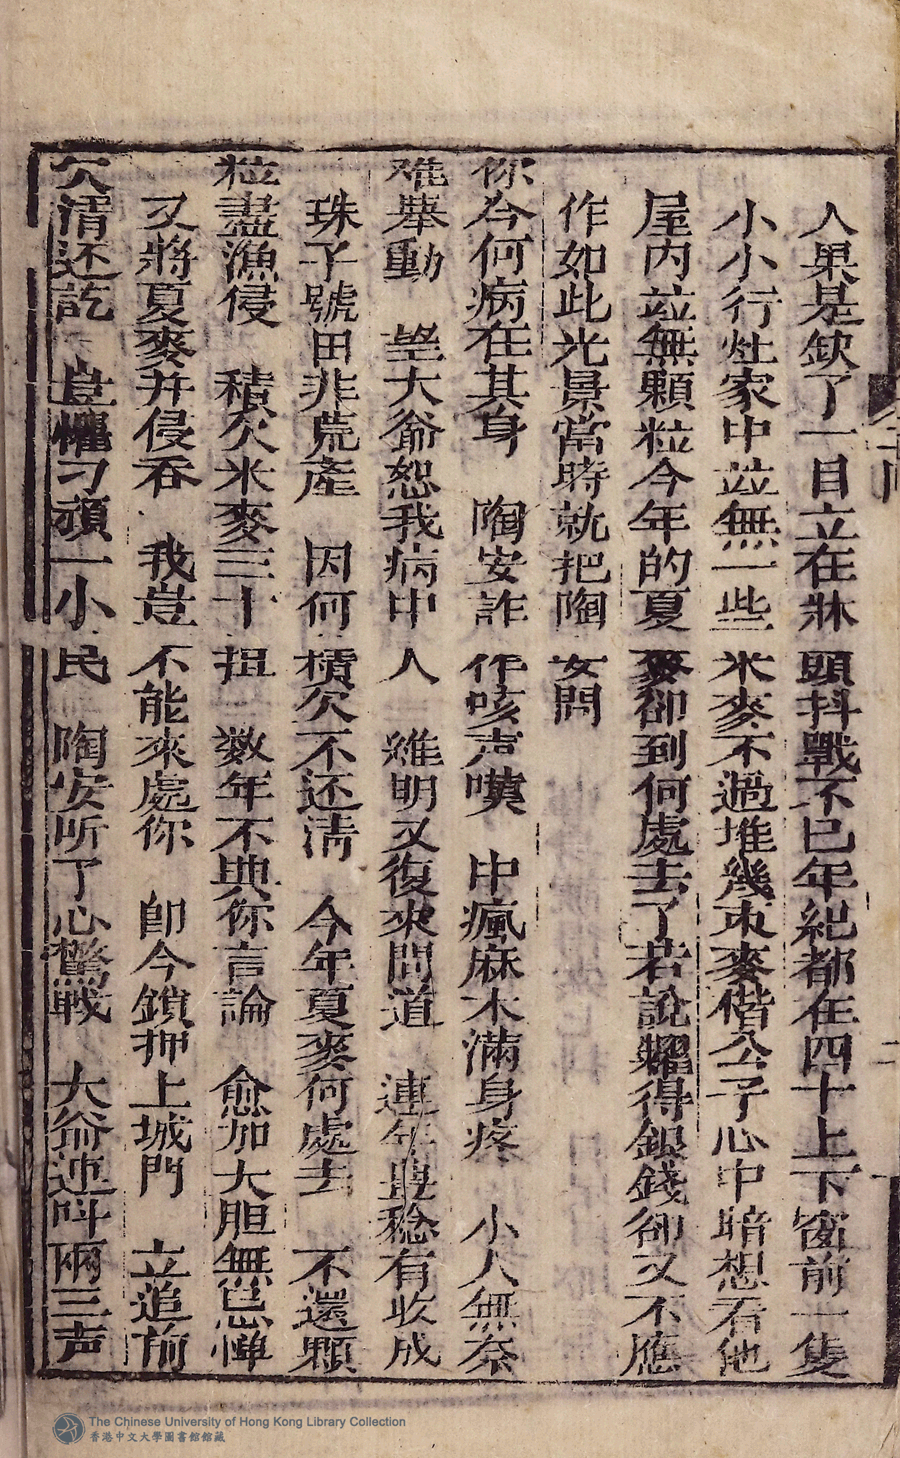 人果是欽了一目立在牀頭抖戰不已年紀都在四十上下窗前一隻
小小行灶家中並無一些米麥不過堆幾束麥楷公子心中暗想看他
屋內並無顆粒今年的夏麥卻到何處去了若說糶得銀錢卻又不應
作如此光景當時就把陶安問
你今何病在其身 陶安詐作咳声嘆 中瘋麻木滿身疼 小人無奈
难舉動 望大爺恕我病中人 雖明又復來問道 連年豊稔有收成
珠子號田非荒產 因何積欠不还清 今年夏麥何處去 不還顆
粒盡漁侵 積欠米麥三十担 数年不與你言論 愈加大胆無忌憚
又將夏麥并侵吞 我豈不能來處你 卽今鎖押上城門 立追前
欠清还訖 豈懼刁頑一小民 陶安听了心驚战 大爺連叫兩三声
二
The Chinese University of Hong Kong Library Collection
香港中文大學圖書館館藏